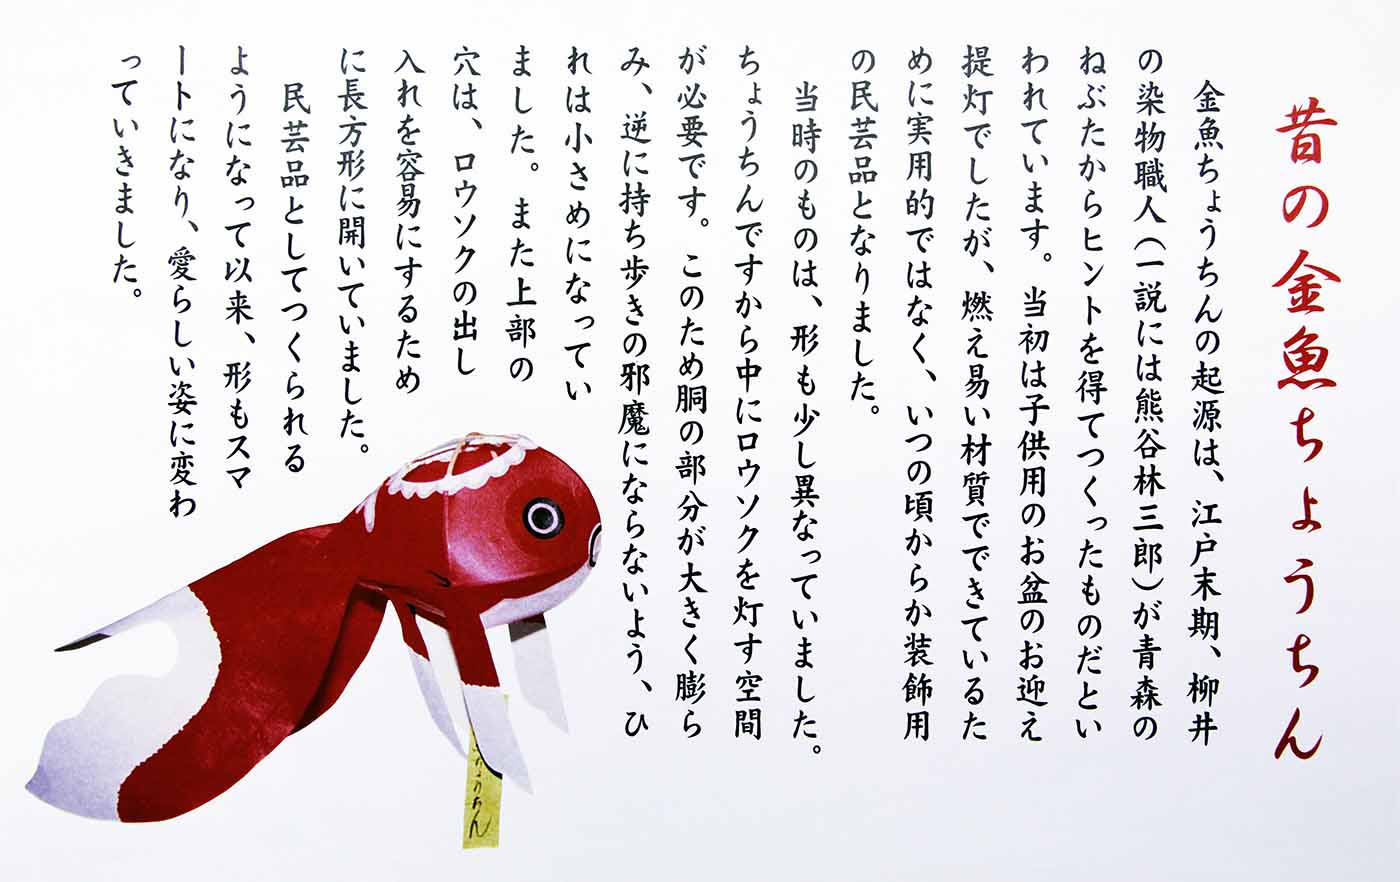 昔の金魚ちょうちん
金魚ちょうちんの起源は、江戸末期、柳井
の染物職人(一説には熊谷林三郎)が青森の
ねぶたからヒントを得てつくったものだとい
われています。当初は子供用のお盆のお迎え
提灯でしたが、燃え易い材質でできているた
めに実用的ではなく、いつの頃からか装飾用
の民芸品となりました。
当時のものは、形も少し異なっていました。
ちょうちんですから中にロウソクを灯す空間
が必要です。このため胴の部分が大きく膨ら
み、逆に持ち歩きの邪魔にならないよう、ひ
れは小さめになってい
ました。また上部の
穴は、ロウソクの出し
入れを容易にするため
に長方形に開いていました。
民芸品としてつくられる
ようになって以来、形もスマ
ートになり、愛らしい姿に変わ
っていきました。
ちょうちん